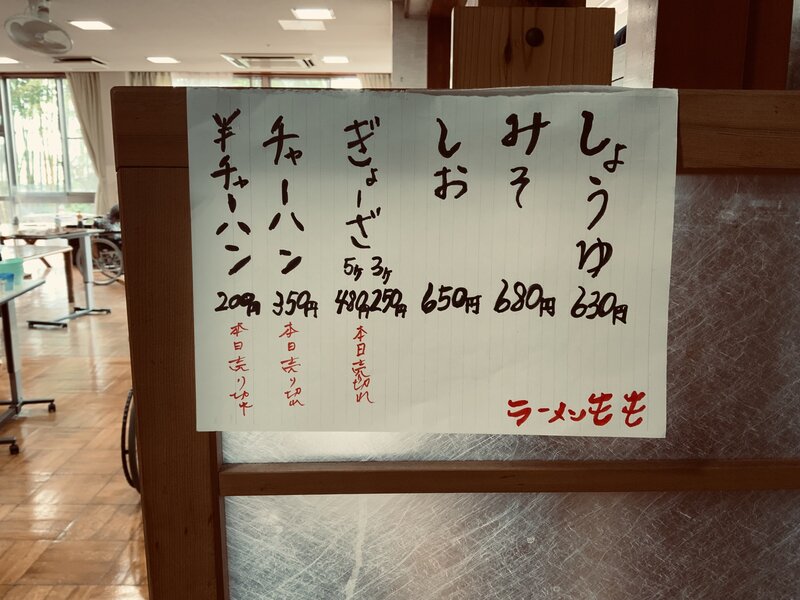 しょうゆ
630円
みそ
680円
しお
650円
ぎょーざ
5ヶ 3ヶ
480円 250円
本日売切れ
チャーハン
350円
本日売り切れ
半チャーハン
200円
本日売り切れ
ラーメンもも